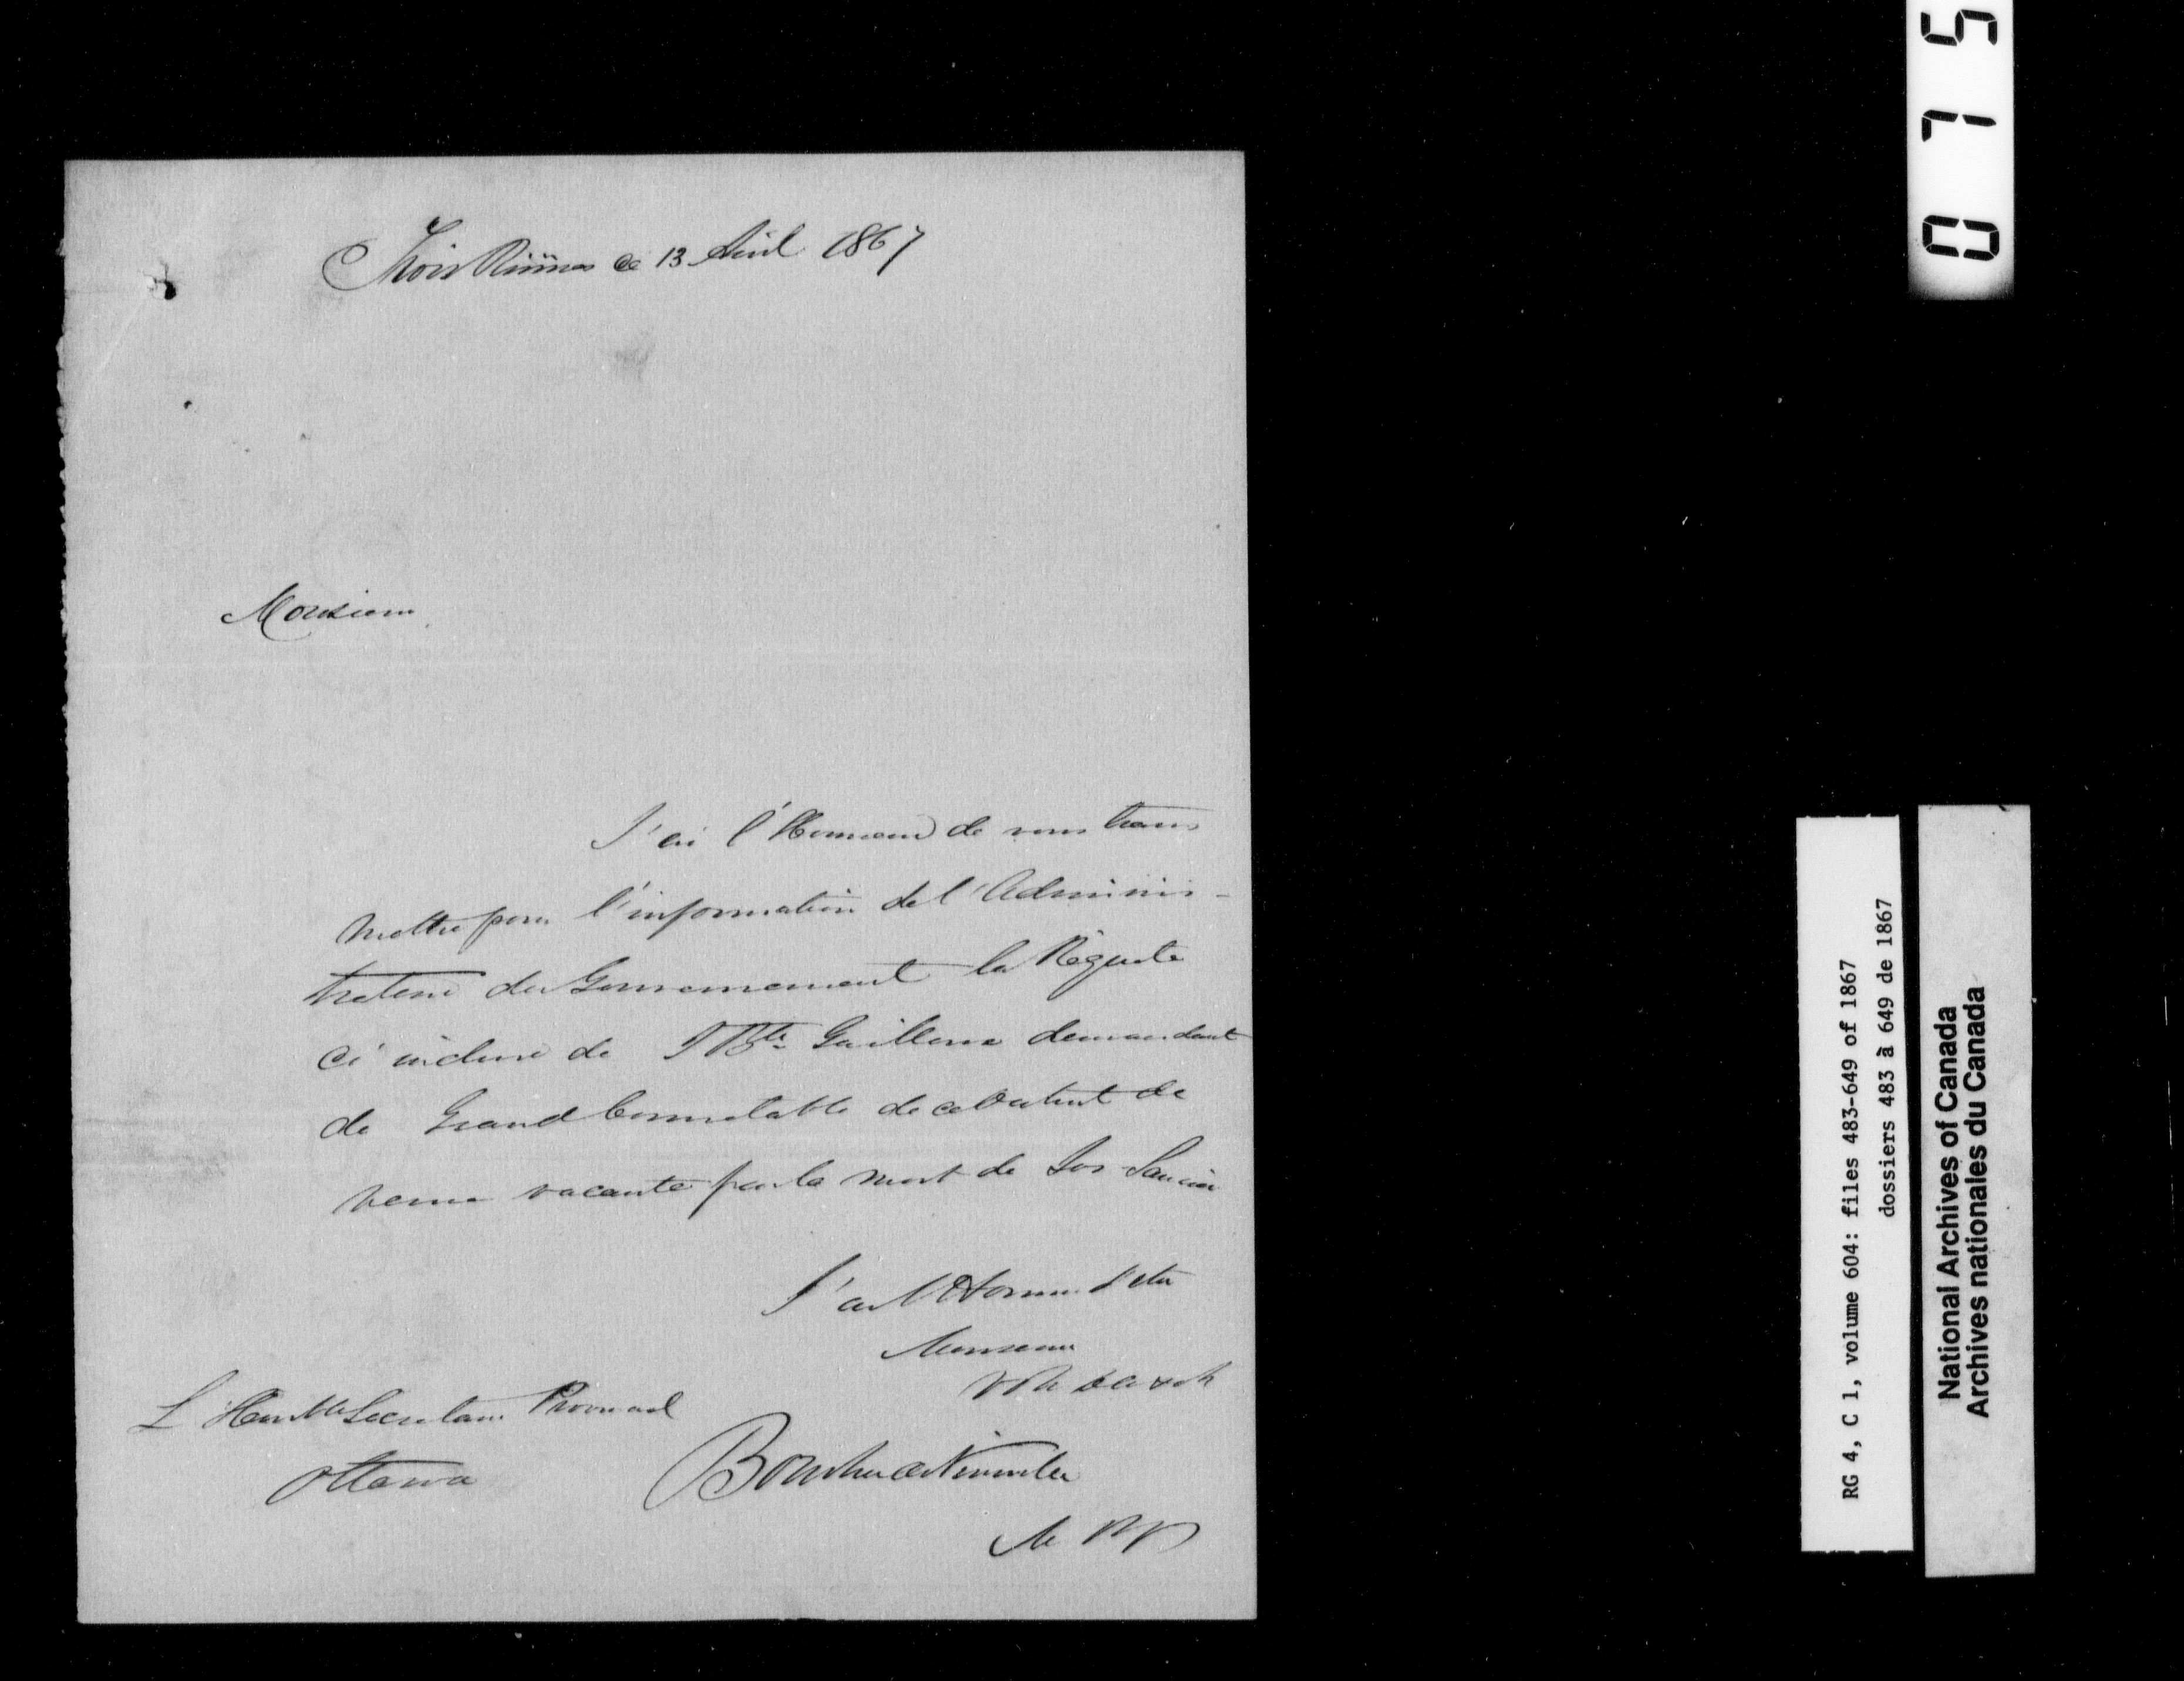 Trois Rivières ce 13 Avril 1867
Monsieur
J'ai l'Honneur de vous trans
mettre pour l'information de l'Adminis-
trateur du Gouvernement la Réquête
ci incluse de J Bte Guillemette demandant
de Grand Connetable de ce District de
venue vacante par la mort de Jos Saucier
J'ai l'Honneur d'être
Monsieur
Votre
L'Honble Secretaire Provincial
Ottawa
Boucher de Niverville
M P P
0 7 5
RG 4, C 1, volume 604: files 483-649 of 1867
dossiers 483 à 649 de 1867
National Archives of Canada
Archives nationales du Canada